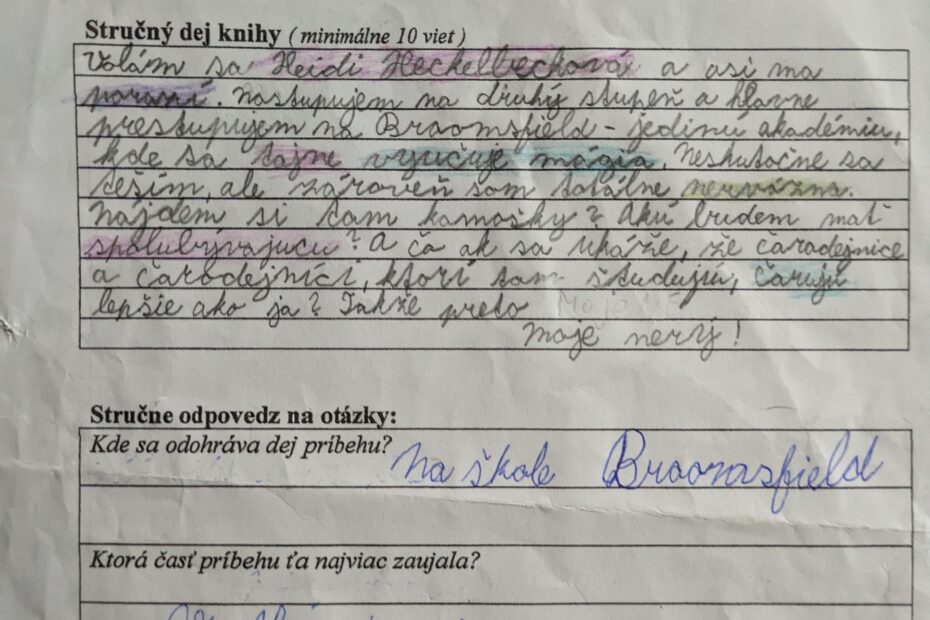 Stručný dej knihy ( minimálne 10 viet )
Volám sa Heidi Heckelbechová a asi ma
porazí. Nastupujem na druhý stupeň a hlavne
prestupujem na Broomsfield - jedinú akadémiu,
kde sa tajne vyučuje mágia. Neskutočne sa
teším, ale zároveň som totálne nervózna.
Nájdem si tam kamošky? Akú budem mať
spolubývajucu? A čo ak sa ukáže, že čarodejnice
a čarodejníci, ktorí tam študujú, čarujú
lepšie ako ja? Takže preto
moje nervy!
Stručne odpovedz na otázky:
Kde sa odohráva dej príbehu?
Na škole Broomsfield
Ktorá časť príbehu ťa najviac zaujala?